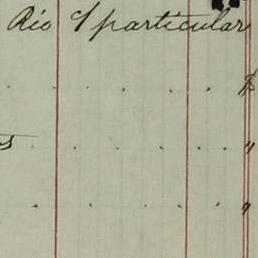 Rio S/particular
. . . . $
5 . . . "
. . . "